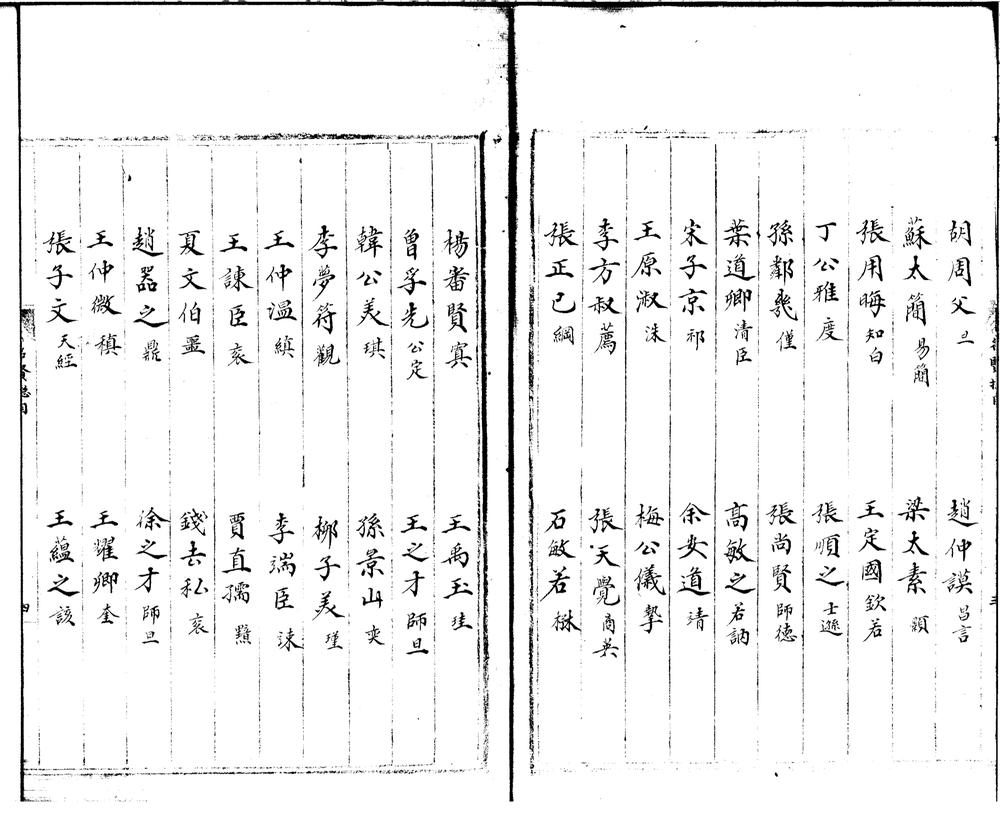 胡周父旦 趙仲謨昌言
蘇太簡易簡 梁太素顥
張用晦知白 王定國欽若
丁公雅度 張順之士遜
孫鄰幾僅 張尚賢師德
葉道卿清臣 高敏之若訥
宋子京祁 余安道靖
王原淑洙 梅公儀摯
李方叔廌 張天覺商英
張正已綱 石敏若𢘫
楊審賢寘 王禹玉珪
曾孚先公定 王之才師旦
韓公美琪 孫景山奭
李夢符觀 柳子美瑾
王仲溫縝 李端臣竦
王諫臣袞 賈直孺黯
夏文伯噩 錢去私袞
趙器之鼎 徐之才師旦
王仲微稹 王耀卿奎
張子文天經 王蘊之該
名賢氏目
四
三